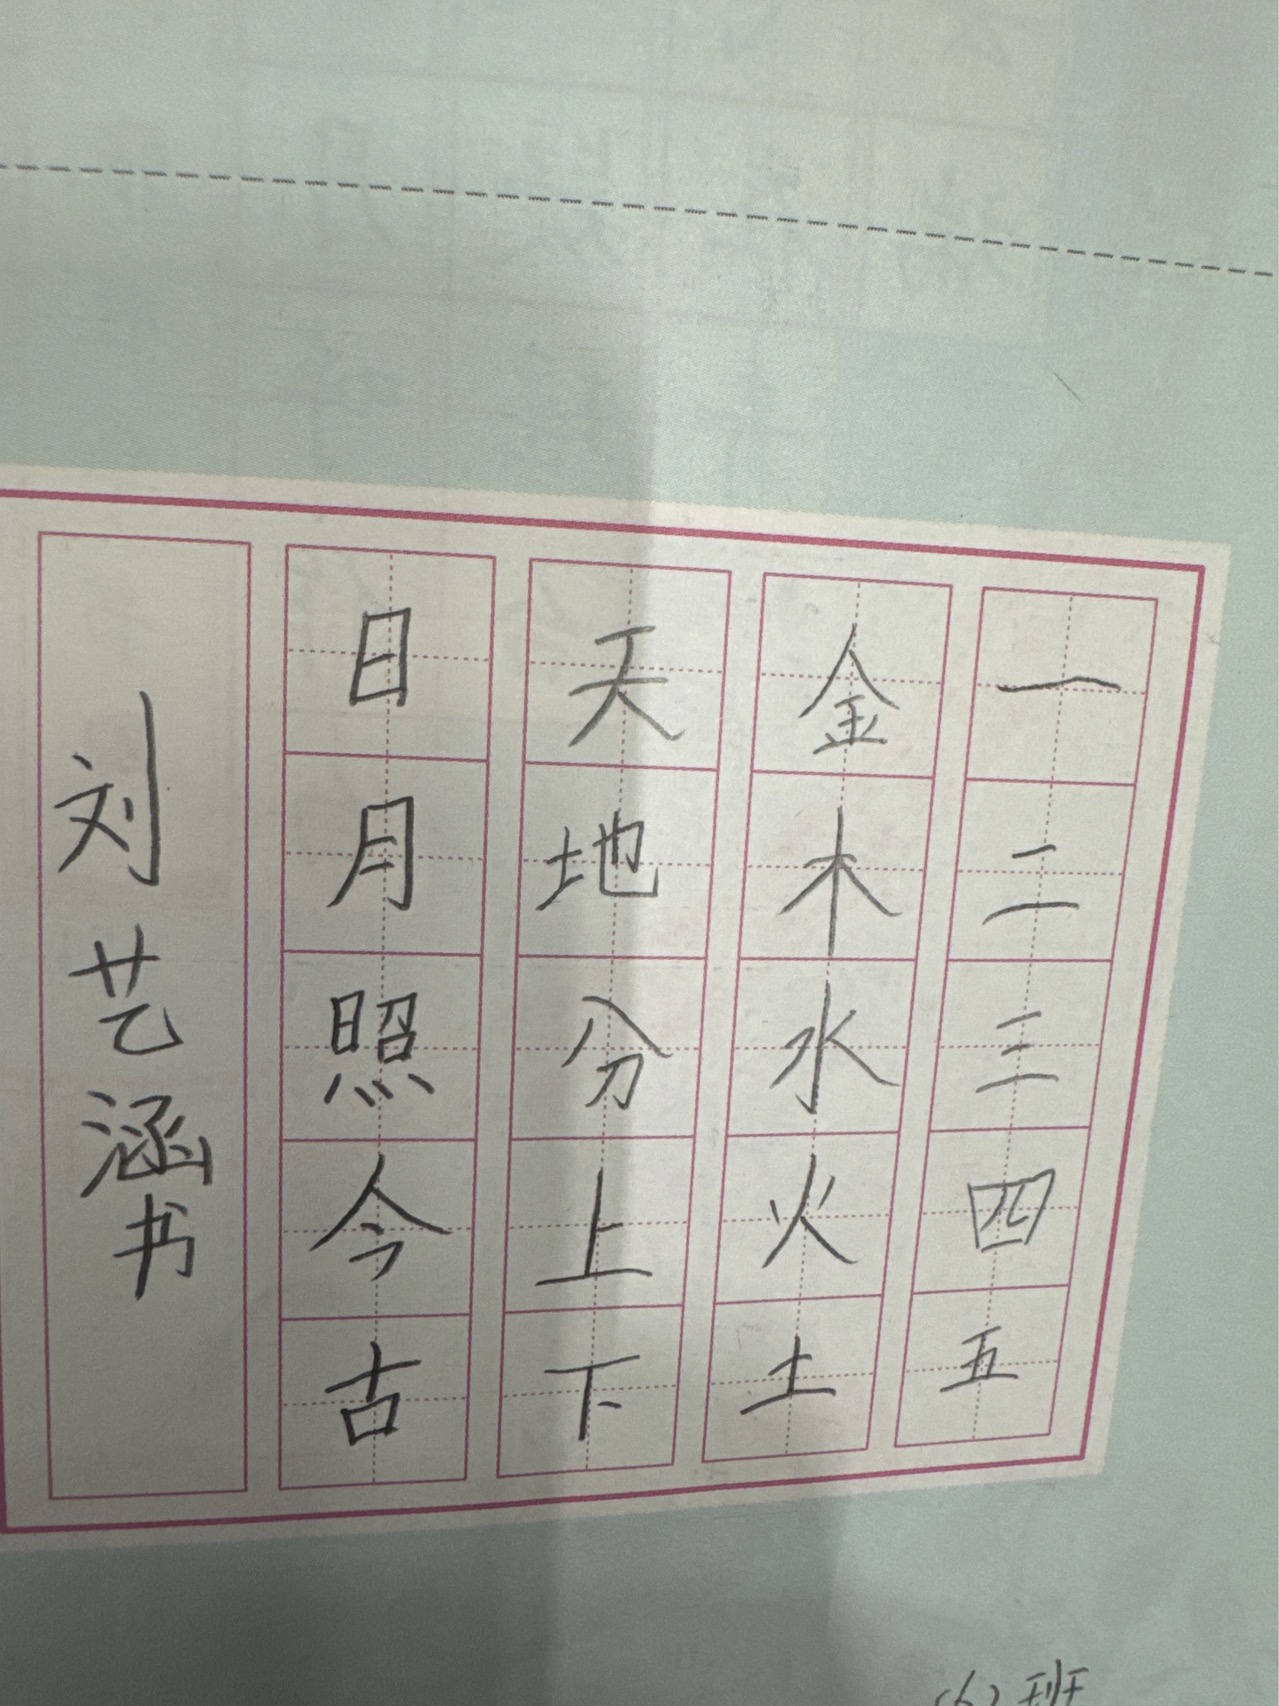 一二三四五
金木水火土
天地分上下
日月照今古
刘艺涵书
(6)班